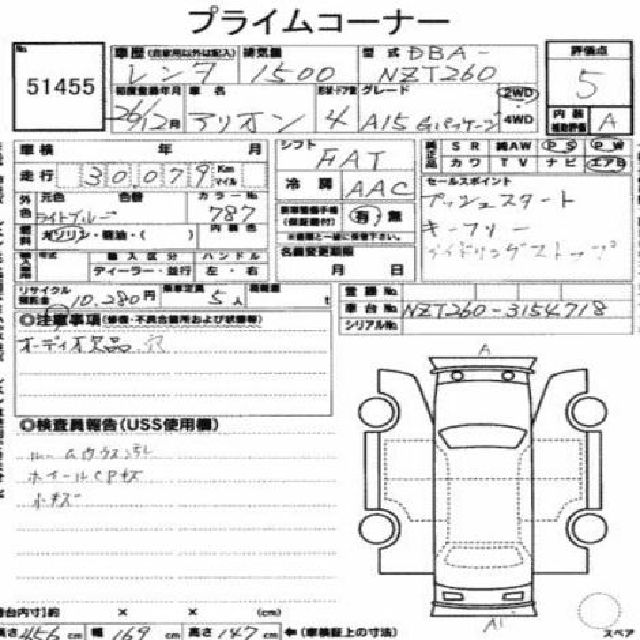 プライムコーナー
No. 51455
車歴 (自家用以外は記入) レンタ 排気量 1500 型式 DBA-NZT260
評価点 5
初度登録年月 26/12月 車名 アリオン 形状・ドア数 4 グレード A15 Gパッケージ 2WD 4WD
内装 補助評価 A
車検 年 月
シフト FAT
純正品 SR 純AW PS PW
カワ TV ナビ エアB
走行 30,079 Km マイル
冷房 AAC
セールスポイント
プッシュスタート
キーフリー
アイドリングストップ
外色 元色 ライトブルー 色替 カラーNo. 787
燃料 ガソリン・軽油・( ) 内装色
有・無
(保証書付)
輸入区分 ハンドル
ディーラー・並行 左・右
名義変更期限
月 日
リサイクル預託金 10,280円 乗車定員 5人 積載量 t
登録No.
車台No. NZT260-3154718
シリアルNo.
◎注意事項(修復・不具合箇所および状態等)
オーディオ欠品 穴
◎検査員報告(USS使用欄)
ホイールCPキズ
小キズ
A
A1
荷台内寸)約 × × (cm)
長さ 456 cm 幅 169 cm 高さ 147 cm ⇐(車検証上の寸法)
スペア